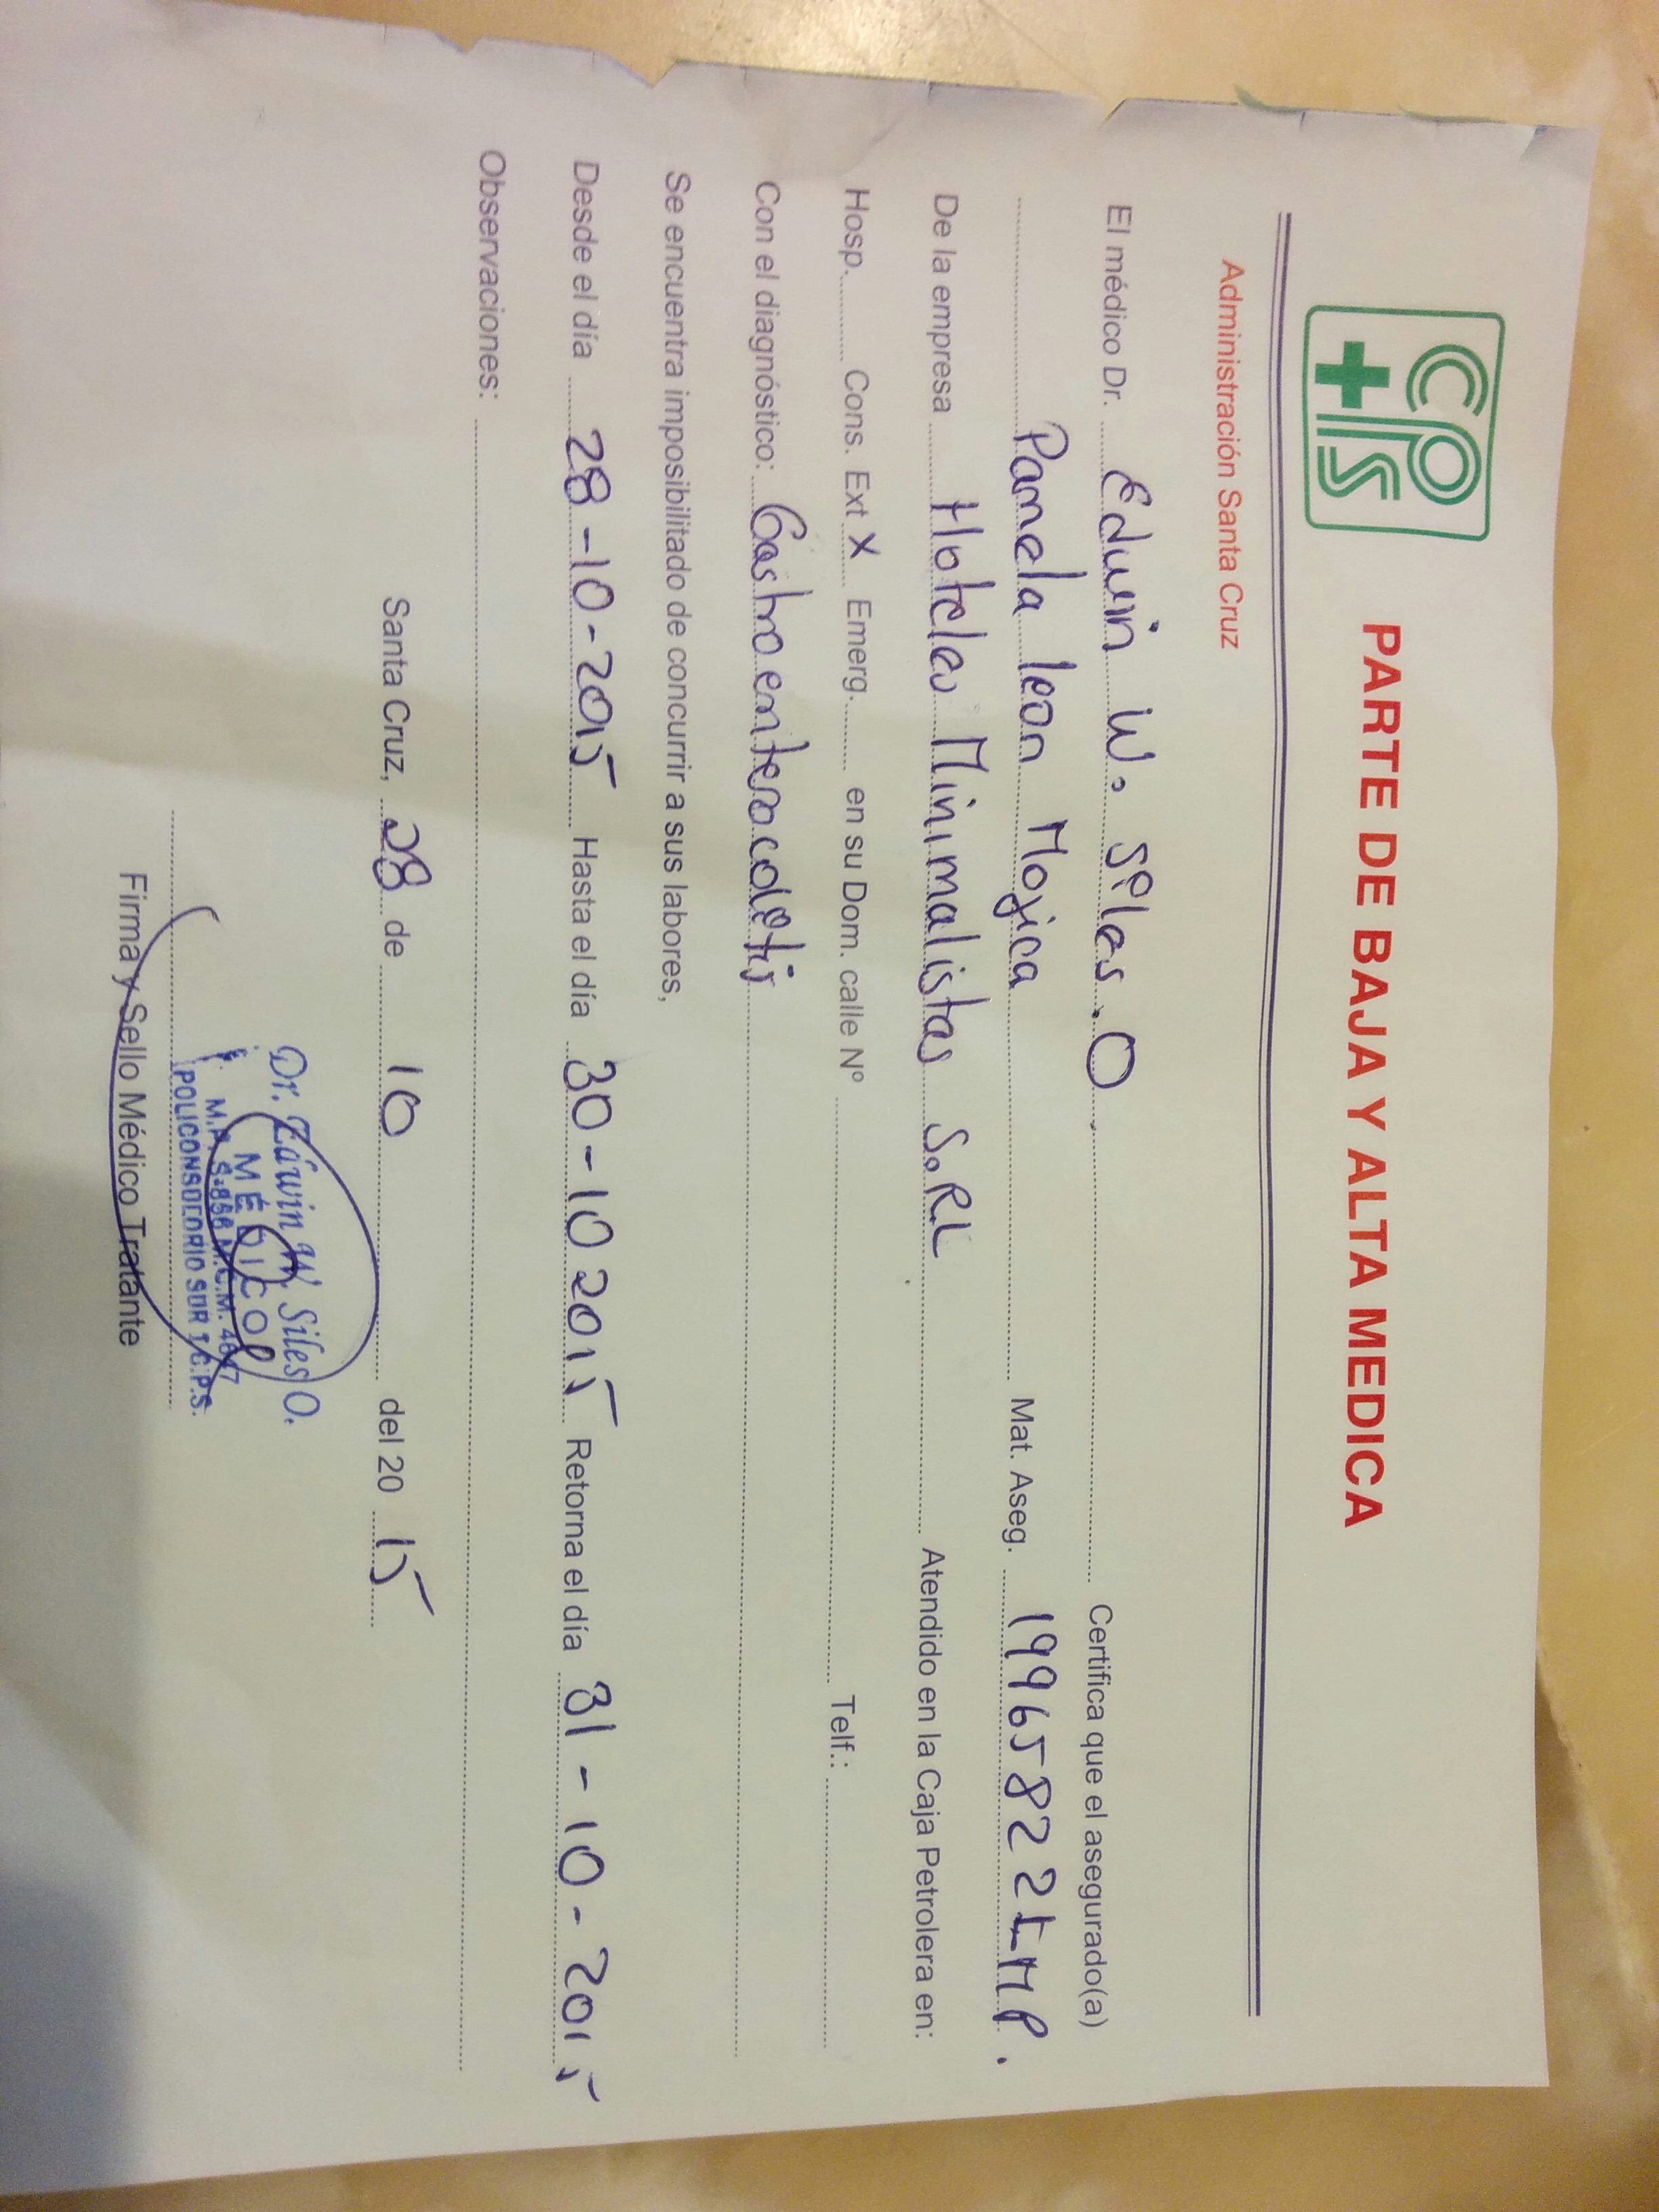 CPS
PARTE DE BAJA Y ALTA MEDICA
Administración Santa Cruz
El médico Dr. Edwin W. Siles. O Certifica que el asegurado(a)
Pamela leon Mojica Mat. Aseg. 19965822LMP.
De la empresa Hoteles Minimalistas S.R.L Atendido en la Caja Petrolera en:
Hosp. Cons. Ext X Emerg. en su Dom. calle Nº Telf.:
Con el diagnóstico: Gastroenterocolitis
Se encuentra imposibilitado de concurrir a sus labores,
Desde el día 28-10-2015 Hasta el día 30-10 2015 Retorna el día 31-10-2015
Observaciones:
Santa Cruz, 28 de 10 del 20 15
Dr. Edwin W. Siles O.
MÉDICO
M.P. S-856 M.C.M.
POLICONSULTORIO SUR C.P.S.
Firma y Sello Médico Tratante